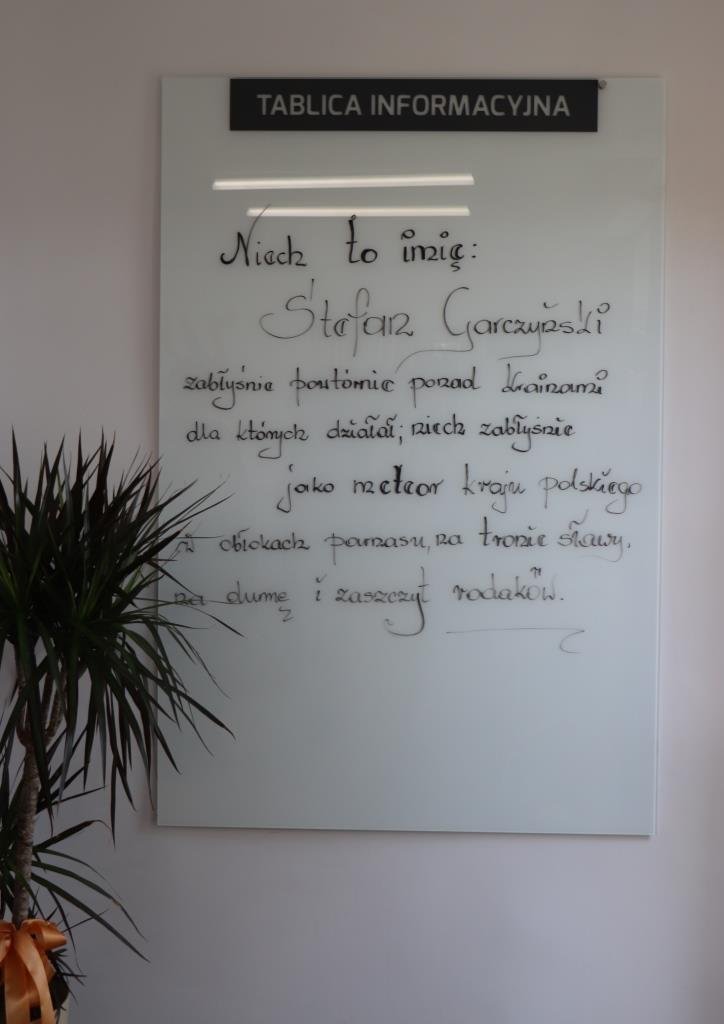 TABLICA INFORMACYJNA
Niech to imię:
Stefan Garczyński
zabłyśnie powtórnie ponad krainami
dla których działał; niech zabłyśnie
jako meteor kraju polskiego
w obłokach parnasu, na tronie sławy,
na dumę i zaszczyt rodaków.